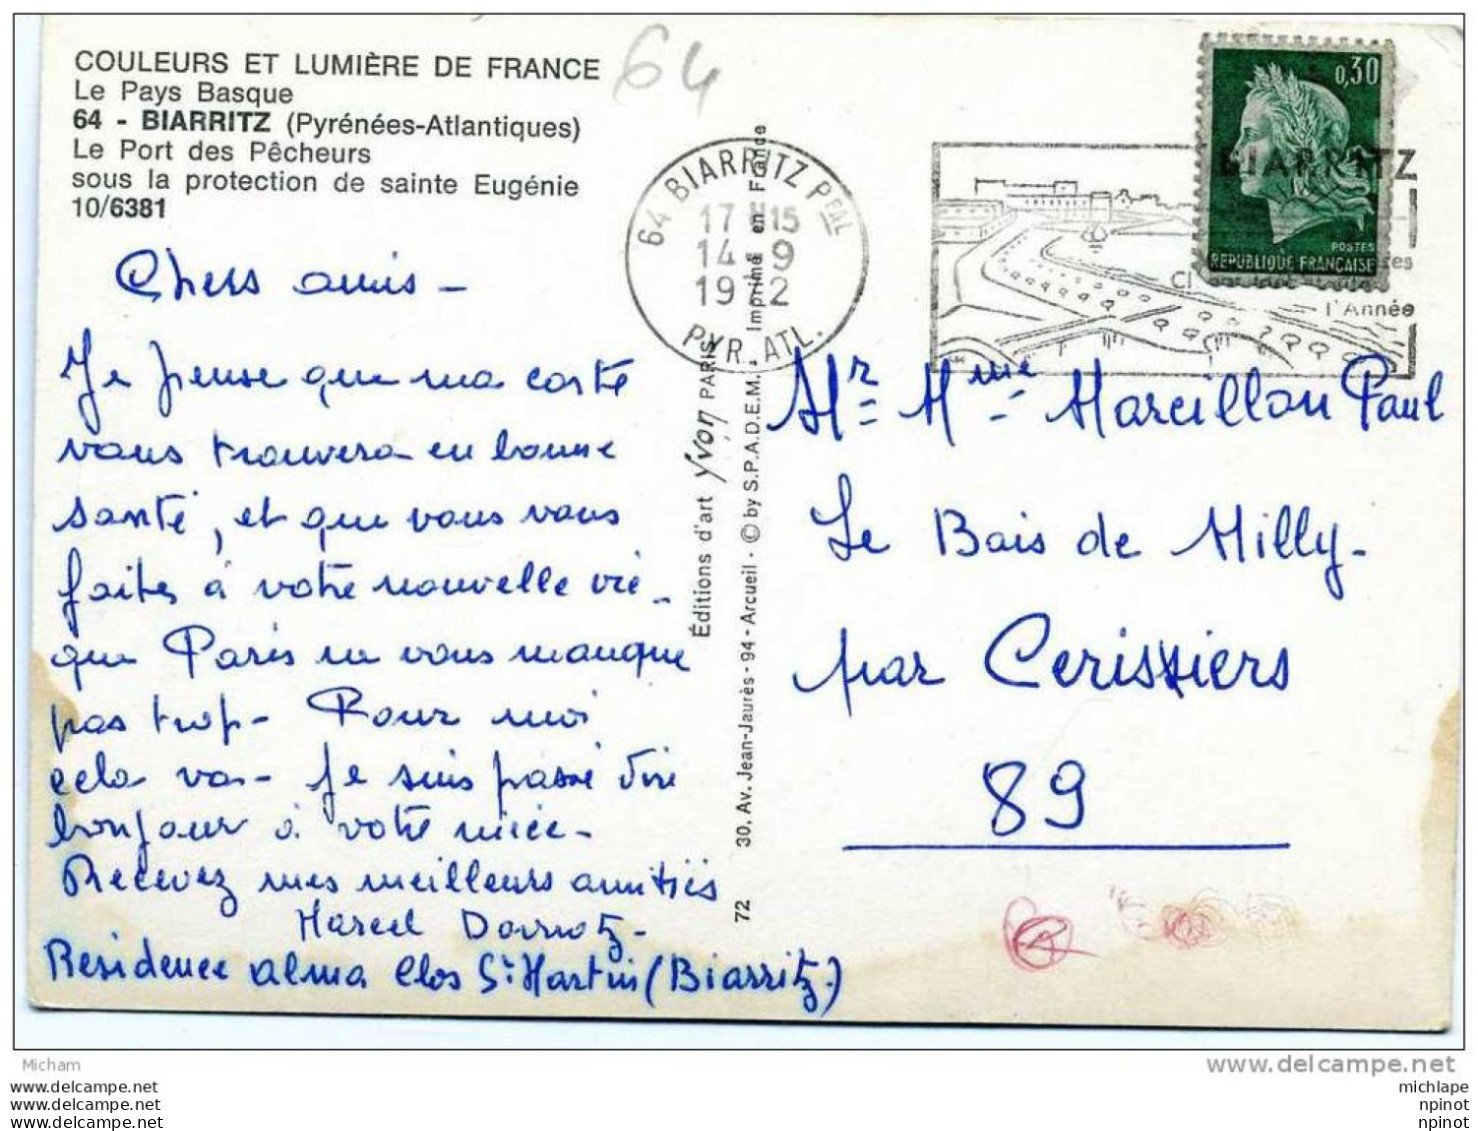 COULEURS ET LUMIÈRE DE FRANCE
Le Pays Basque
64 - BIARRITZ (Pyrénées-Atlantiques)
Le Port des Pêcheurs
sous la protection de sainte Eugénie
10/6381
64
64 BIARRITZ Ppal
17 H 15
14 - 9
1972
PYR. ATL.
0,30
POSTES
REPUBLIQUE FRANÇAISE
BIARRITZ
l'Année
Chers amis -
Je pense que ma carte
vous trouvera en bonne
santé, et que vous vous
faites à votre nouvelle vie -
que Paris ne vous manque
pas trop - Pour moi
cela va - Je suis passé dire
bonjour à votre nièce -
Recevez mes meilleurs amitiés
Marcel
Residence alma Clos St Martin (Biarritz)
Éditions d'art Yvon PARIS
72 30, Av. Jean-Jaurès - 94 - Arcueil - © by S.P.A.D.E.M. - Imprimé en France
Mr = Mme = Marcillon Paul
Le Bois de Milly -
par Cerisiers
89
Micham
delcampe.net
www.delcampe.net
www.delcampe.net
www.delcampe.net
michlape
npinot
npinot